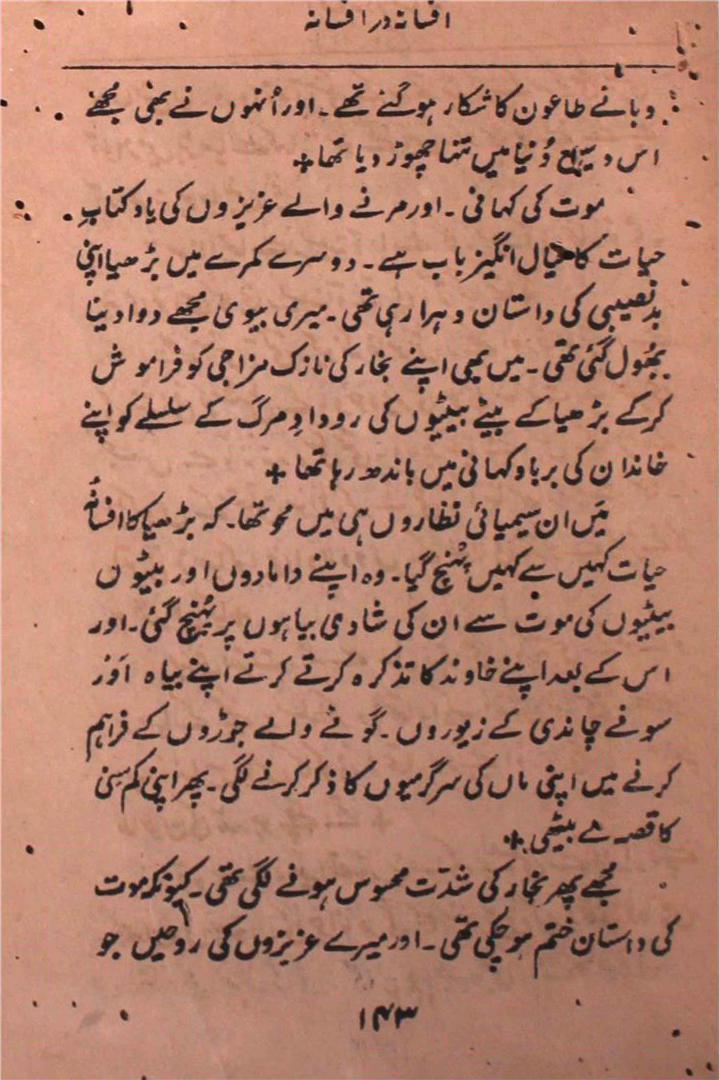 افسانہ در افسانہ
وبائے طاعون کا شکار ہو گئے تھے۔ اور اُنہوں نے بھی مجھے
اس وسیع دُنیا میں تنہا چھوڑ دیا تھا +
موت کی کہانی۔ اور مرنے والے عزیزوں کی یاد کتابِ
حیات کا خیال انگیز باب ہے۔ دوسرے کمرے میں بڑھیا اپنی
بدنصیبی کی داستان دہرا رہی تھی۔ میری بیوی مجھے دوا دینا
بھُول گئی تھی۔ میں بھی اپنے بخار کی نازک مزاجی کو فراموش
کر کے بڑھیا کے بیٹے بیٹیوں کی رودادِ مرگ کے سلسلے کو اپنے
خاندان کی برباد کہانی میں باندھ رہا تھا +
مَیں ان سیمیائی نظاروں ہی میں محو تھا۔ کہ بڑھیا کا افسانۂ
حیات کہیں سے کہیں پُہنچ گیا۔ وہ اپنے دامادوں اور بیٹوں
بیٹیوں کی موت سے ان کی شادی بیاہوں پر پُہنچ گئی۔ اور
اس کے بعد اپنے خاوند کا تذکرہ کرتے کرتے اپنے بیاہ اور
سونے چاندی کے زیوروں۔ گوٹے والے جوڑوں کے فراہم
کرنے میں اپنی ماں کی سرگرمیوں کا ذکر کرنے لگی۔ پھر اپنی کم سِنی
کا قصہ لے بیٹھی +
مجھے پھر بخار کی شدّت محسوس ہونے لگی تھی۔ کیونکہ موت
کی داستان ختم ہو چکی تھی۔ اور میرے عزیزوں کی روحیں جو
۱۴۳